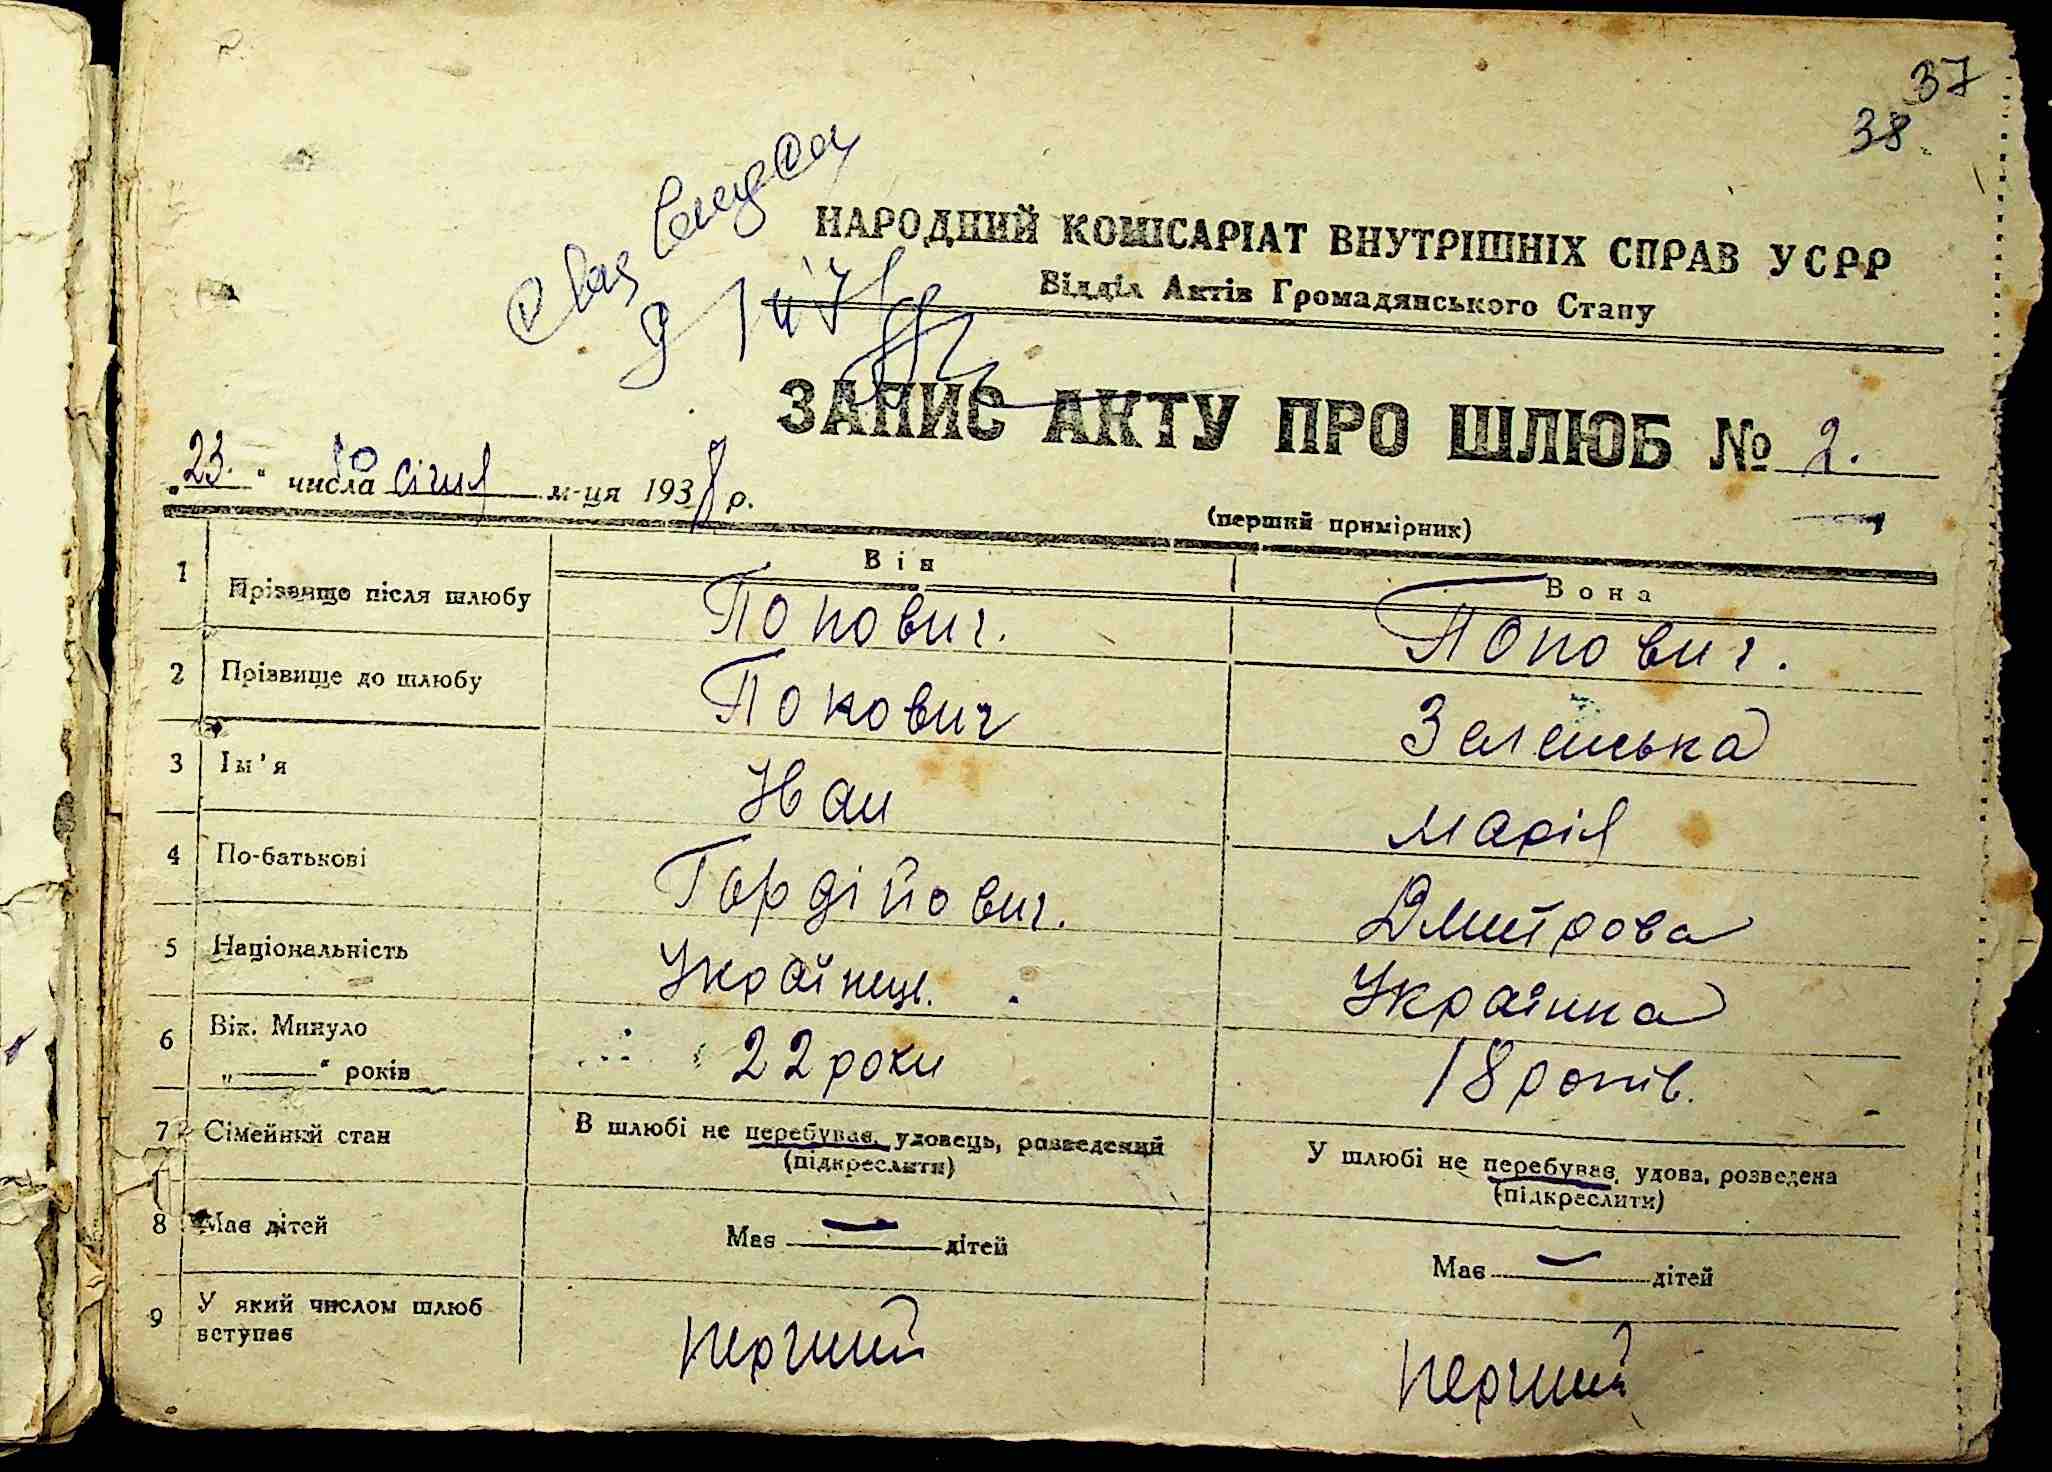 37
38
НАРОДНИЙ КОМІСАРІАТ ВНУТРІШНІХ СПРАВ УСРР
Відділ Актів Громадянського Стану
ЗАПИС АКТУ ПРО ШЛЮБ № 2.
„23.“ числа січня м-ця 1938 р.
(перший примірник)
Він Вона
1 Прізвище після шлюбу Попович. Попович.
2 Прізвище до шлюбу Попович Зеленська
3 Ім'я Иван Марія
4 По-батькові Гордійович. Дмитрова
5 Національність Українец. Українка
6 Вік. Минуло „——“ років 22 роки 18 років.
7 Сімейний стан В шлюбі не перебуває, удовець, розведений (підкреслити) У шлюбі не перебуває, удова, розведена (підкреслити)
8 Має дітей Має — дітей Має — дітей
9 У який числом шлюб вступає перший перший